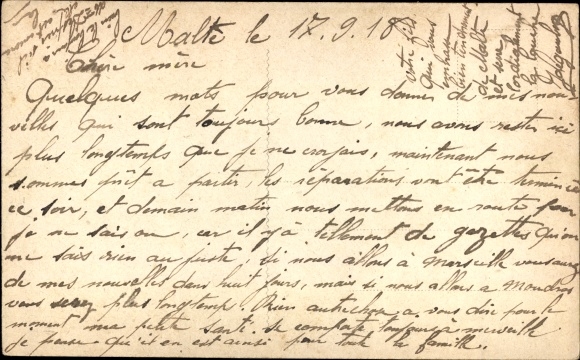 Malte le 17.9.18
Chère mère
Quelques mots pour vous donner de mes nou
velles qui sont toujours bonne, nous avons rester ici
plus longtemps que je ne croyais, maintenant nous
sommes prêt a partir, les réparations vont être terminée
ce soir, et demain matin nous mettons en route pour
je ne sais ou, car il y a tellement de gazettes qu'on
ne sais rien au juste, si nous allons à Marseille vous aurez
de mes nouvelles dans huit jours, mais si nous allons a Moudros
vous serez plus longtemps. Rien autre chose a vous dire pour le
moment ma petite santé se comporte toujours a merveille
je pense qu'il en est ainsi pour toute la famille.
votre fils
qui vous
embrasse
bien tendrement
de Malte
et une
cordialement